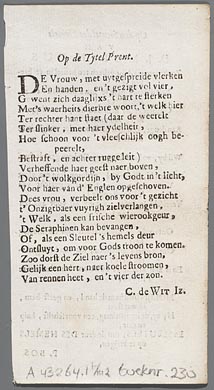 Op de Tytel Prent.
DE Vrouw, met uytgespreide vlerken
En handen, en 't gezigt vol vier,
Gewent zich daaglijks 't hart te sterken
Met's waarheits dierbre woort, 't welk hier
Ter rechter hant staet (daar de weerelt
Ter slinker, met haar ydelheit,
Hoe schoon voor 't vleeschlijk oogh be-
peerelt,
Bestraft, en achter ruggeleit)
Verheffende haer geest naer boven;
Door 't wolkgordijn, by Godt in 't licht,
Voor haer van d' Englen opgeschoven.
Dees vrou, verbeelt ons voor 't gezicht
't Onzigtbaer vuyrigh zielverlangen,
't Welk, als een frische wierookgeur,
De Seraphinen kan bevangen,
Of, als een Sleutel 's hemels deur
Ontsluyt, om voor Gods troon te komen.
Zoo dorst de Ziel naer 's levens bron,
Gelijk een hert, naer koele stroomen,
Van rennen heet, en 't vier der zon.
C. de WIT Iz.
A 43264.1/102 boeknr. 230